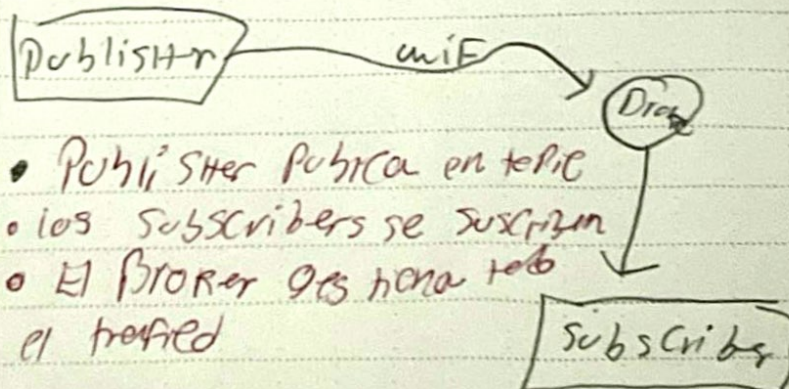 Publisher
• Publisher Publica en topic
• los subscribers se suscriben
• El Broker gestiona todo
el trafico
Subscriber